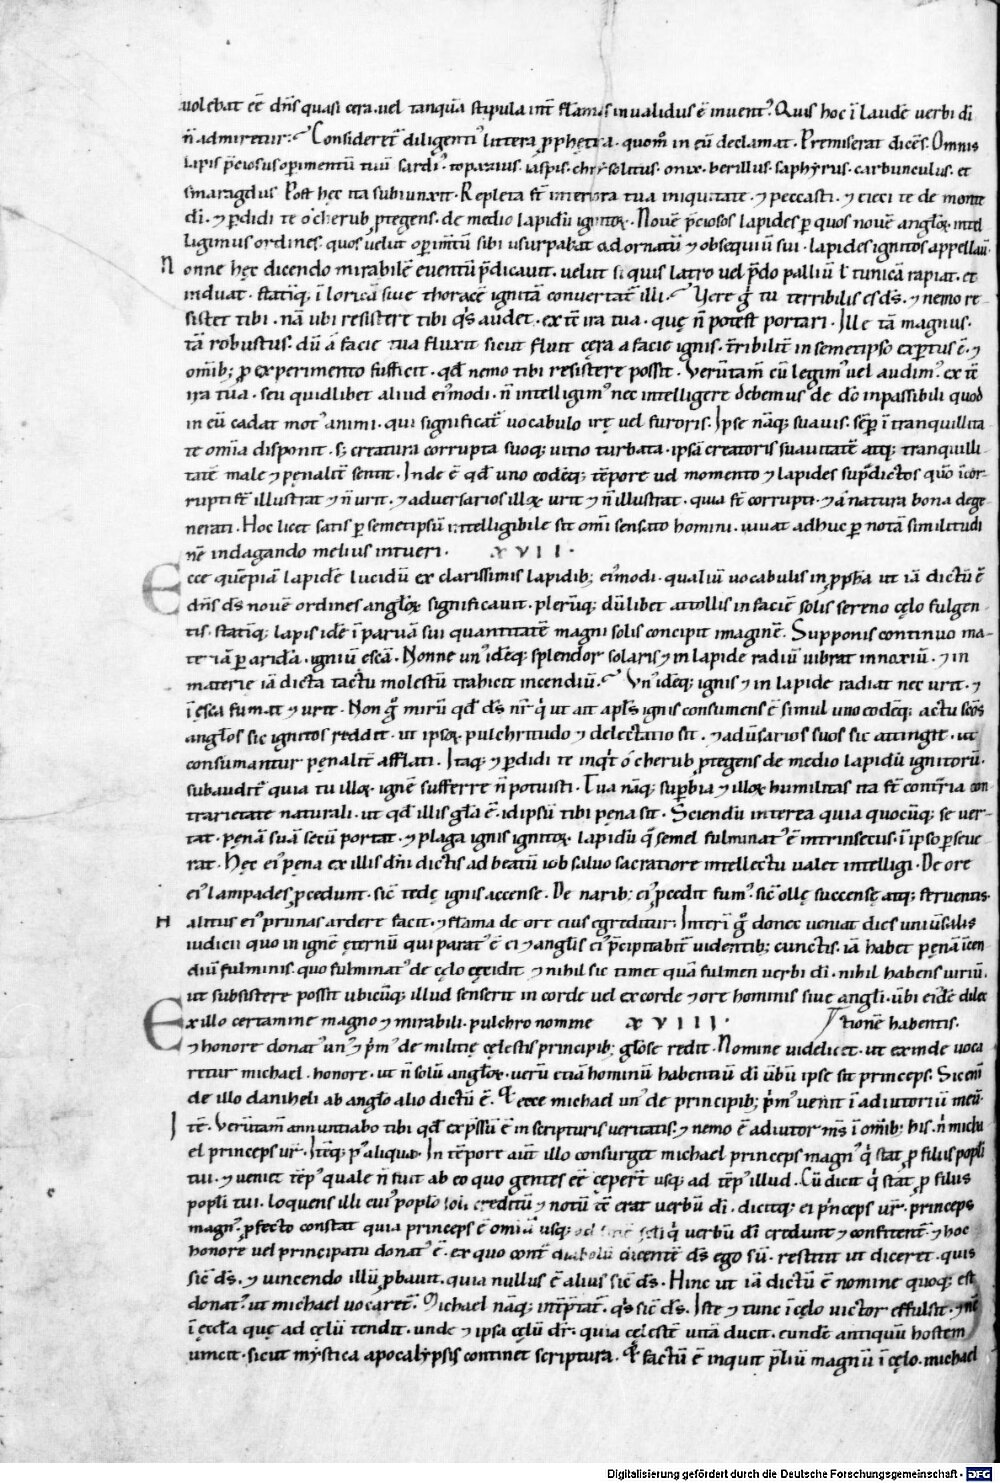 uolebat eē dn̄s quasi cera. uel tanquā stipula int̄ flamas inualidus ē inuent᾽. Quis hoc ī laudē uerbi dī
n̄ admiretur. Consideret᷑ diligenti᾽ littera ꝓphetica. quom̄ in eū declamat. Premiserat dicēs. Omnis
lapis p̄ciosus operimentū tuū. sardi᾽. topazius. iaspis. chrysolitus. onix. berillus. saphyrus. carbunculus. et
smaragdus. Post hęc ita subiunxit. Repleta st̄ interiora tua iniquitate. ⁊ peccasti. ⁊ eieci te de monte
dī. ⁊ ꝑdidi te o cherub ꝓtegens. de medio lapidū ignitoꝝ. Nouē p̄ciosos lapides ꝑ quos nouē angl̄oꝝ intel
ligimus ordines. quos uelut operim̄tū sibi usurpabat ad ornatū ⁊ obsequiū sui. lapides ignitos appellau̅.
N onne hęc dicendo mirabilē euentū p̄dicauit. uelut si quis latro uel p̄do palliū l̄ tunicā rapiat. et
induat. statīq; ī loricā siue thoracē ignitā conuertat᷑ illi. Vere g᷑ tu terribilis es dš. ⁊ nemo re
sistet tibi. nā ubi resistere tibi qͥs audet. ex tē ira tua. quę n̄ potest portari. Ille tā magnus.
tā robustus. dū a facie tua fluxit sicut fluit cęra a facie ignis. t̄ribilit̄ in semetipso exꝑtus ē. ⁊
om̄ib; ꝓ experimento sufficit. qd̄ nemo tibi resistere possit. Verūtam̄ cū legim᾽ uel audim᾽ ex tē
ira tua. seu quidlibet aliud ei᾽modi. n̄ intelligim᾽ nec intelligere debemus de dō inpassibili quod
in eū cadat mot᾽ animi. qui significat᷑ uocabulo irę uel furoris. Ipse nāq; suauis. sēp̄ ī tranquillita
te omia disponit. s; creatura corrupta suoq; uitio turbata. ipsā creatoris suauitatē atq; tranquilli
tatē male ⁊ pęnalit̄ sentit. Inde ē qd̄ uno eodēq; tēpore uel momento ⁊ lapides sup̄dictos quo incor
rupti st̄ illustrat ⁊ n̄ urit. ⁊ aduersarios illoꝝ urit ⁊ n̄ illustrat. quia st̄ corrupti. ⁊ a natura bona dege
nerati. Hoc licet satis ꝑ semetipsū intelligibile sit om̄i sensato homini. iuuat adhuc ꝑ notā similitudi
nē indagando melius intueri. XVII.
Ecce quēpiā lapidē lucidū ex clarissimis lapidib; ei᾽modi. qualiū uocabulis in ꝓpha ut iā dictū ē
dn̄s dš nouē ordines angl̄oꝝ significauit. plerūq; dū libet attollis in faciē solis sereno cęlo fulgen
tis. statīq; lapis idē ī paruā sui quantitatē magni solis concipit imaginē. Supponis continuo ma
teriā ꝑaridā. igniū escā. Nonne un᾽ idēq; splendor solaris ⁊ in lapide radiū uibrat innoxiū. ⁊ in
materię iā dicta tactu molestū trahicit incendiū. Vn᾽ idēq; ignis ⁊ in lapide radiat nec urit. ⁊
ī esca fumat ⁊ urit. Non g᷑ mirū qd̄ dš nr̄ qͥ ut ait apl̄s ignis consumens ē simul uno eodēq; actu scōs
angl̄os sic ignitos reddit. ut ipsoꝝ pulchritudo ⁊ delectatio sit. ⁊ adūsarios suos sic attingit. ut
consumantur pęnalit̄ afflati. Itaq; ⁊ ꝑdidi te inqͥt o cherub ꝓtegens de medio lapidū ignitorū.
subaudit᷑ quia tu illoꝝ ignē sufferre n̄ potuisti. Tua nāq; suꝑbia ⁊ illoꝝ humilitas ita st̄ cont̄ria con
trarietate naturali. ut qd̄ illis gl̄a ē. id ipsū tibi pęna sit. Sciendū interea quia quocūq; se uer
tat. pęnā suā secū portat. ⁊ plaga ignis ignitoꝝ lapidū q̄ semel fulminat᾽ ē intrinsecus. ī ipso ꝑseue
rat. Hęc ei᾽ pęna ex illis dn̄i dictis ad beatū iob saluo sacratiore intellectu ualet intelligi. De ore
ei᾽ lampades ꝓcedunt. sic̄ tedę ignis accense. De narib; ei᾽ ꝓcedit fum᾽. sic̄ ollę succensę atq; feruentis.
H alitus ei᾽ prunas ardere facit. ⁊ flāma de ore eius egreditur. Interī g᷑ donec ueniat dies uniūsalis
iudicii quo in ignē ęternū qui parat᾽ ē ei ⁊ angl̄is ei᾽ p̄cipitabit᷑ uidentib; cunctis. iā habet pęnā īcen
diū fulminis. quo fulminat᾽ de cęlo cecidit ⁊ nihil sic timet quā fulmen uerbi dī. nihil habens uiriū.
ut subsistere possit ubicūq; illud senserit in corde uel ex corde ⁊ ore hominis siue angl̄i. ūbi eidē dilec
Ex illo certamine magno ⁊ mirabili. pulchro nomine XVIII. tionē habentis.
⁊ honore donat᾽ un᾽ ⁊ p̄m᾽ de militię cęlestis principib; gl̄ose redit. Nomine uidelicet. ut exinde uoca
retur michael. honore. ut n̄ solū angl̄oꝝ. uerū etiā hominū habentiū dī ūbū ipse sit princeps. Sic enī
de illo daniheli ab angl̄o alio dictū ē. Et ecce michael un᾽ de principib; p̄m᾽ uenit ī adiutoriū meū.
I tē. Verūtam̄ annuntiabo tibi qd̄ exp̄ssū ē in scripturis ueritatis. ⁊ nemo ē adiutor ms̄ ī om̄ib; his. n̄ micha
el princeps ur̄. Itēq; p᾽ aliqua. In tēpore aut̄ illo consurget michael princeps magn᾽ qͥ stat ꝓ filiis popl̄i
tui. ⁊ ueniet tēp᾽ quale n̄ fuit ab eo quo gentes eē cęper̄t usq; ad tēp᾽ illud. Cū dicit qͥ stat ꝓ filiis
popl̄i tui. loquens illi cui᾽ popl̄o soli creditū ⁊ notū tē erat uerbū dī. dicitq; ei p̄nceps ur̄. princeps
magn᾽. ꝓfecto constat quia princeps ē omniū usq; ad finē sc̄li qͥ uerbū dī credunt ⁊ confitent᷑. ⁊ hoc
honore uel principatu donat᾽ ē. ex quo cont̄ diabolū dicentē dš ego sū. restitit ut diceret. quis
sic̄ dš. ⁊ uincendo illū ꝓbauit. quia nullus ē alius sic̄ dš. Hinc ut iā dictū ē nomine quoq; est
donat᾽. ut michael uocaret᷑. Michael nāq; int̄p̄tat᷑. qͥs sic̄ dš. Iste ⁊ tunc ī cęlo uictor effulsit. ⁊ nc̄
ī ęccl̄a quę ad cęlū tendit. unde ⁊ ipsa cęlū dr̄. quia cęlestē uitā ducit. eundē antiquū hostem
uincit. sicut mystica apocalypsis continet scriptura. Et factū ē inquit p̄liū magnū ī cęlo. michael
Digitalisierung gefördert durch die Deutsche Forschungsgemeinschaft - DFG